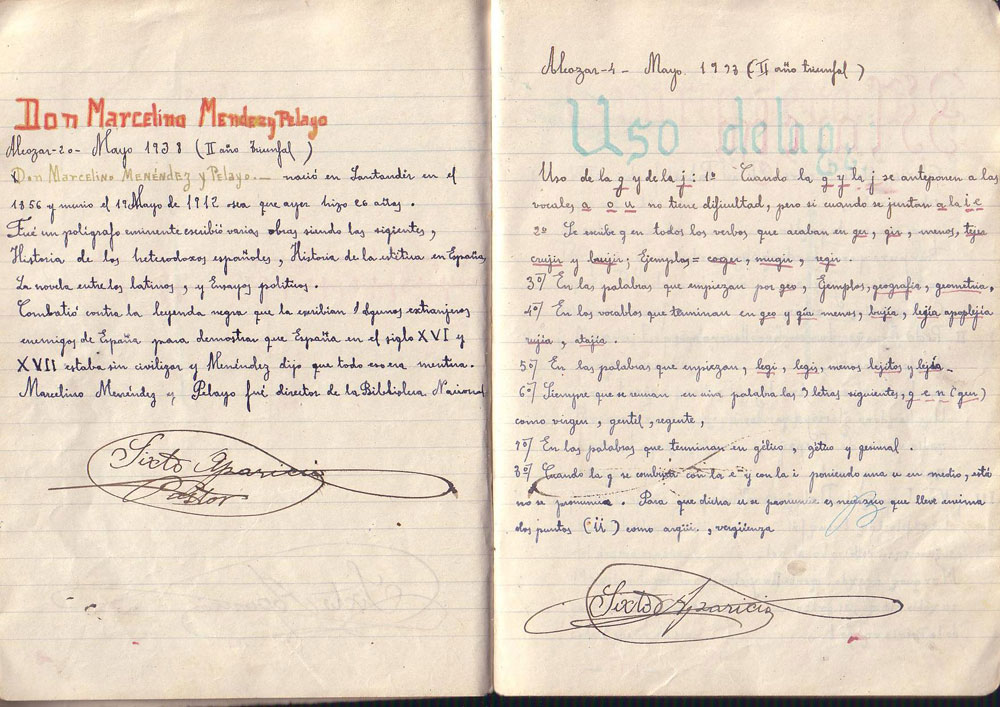 Don Marcelino Mendez y Pelayo
Alcozar-20- Mayo 1938 (II año triunfal)
Don Marcelino MENÉNDEZ y Pelayo. — nació en Santander en el
1856 y murio el 19 Mayo de 1912 osea que ayer hizo 26 años.
Fué un polígrafo eminente escribió varias obras siendo las sigientes,
Historia de los heterodoxos españoles, Historia de la estética en España,
La novela entre los latinos, y Ensayos politicos.
Combatió contra la leyenda negra que la escribian algunos extranjeros
enemigos de España para demostrar que España en el siglo XVI y
XVII estaba sin civilizar y Menéndez dijo que todo eso era mentira.
Marcelino Menéndez y Pelayo fué director de la Biblioteca Nacional
Sixto Aparicio
Pastor
Alcozar-4- Mayo. 1938 (II año triunfal)
Uso de la g
Uso de la g y de la j: 1º Cuando la g y la j se anteponen a las
vocales a o u no tiene dificultad, pero si cuando se juntan a la i e
2º Se escribe g en todos los verbos que acaban en ger, gir, menos, tejer
crujir y brujir; Ejemplos = coger, mugir, regir.
3º/ En las palabras que empiezan por geo, Egemplos, geografia, geometria.
4º/ En los vocablos que terminan en geo y gia menos, bujía, lejía apoplejia
rujia, atajia.
5º/ En las palabras que empiezan, legi, legis, menos lejitos y lejía-
6º/ Siempre que se reunan en una palabra las 3 letras siguientes, g e n (gen)
como virgen, gentil, regente,
7º/ En las palabras que terminan en gélico, gético y gesimal.
8º/ Cuando la g se combina con la e y con la i poniendo una u en medio, esta
no se pronuncia. Para que dicha u se pronuncie es necesario que lleve encima
dos puntos (ü) como argüi., vergüenza
Sixto Aparicio